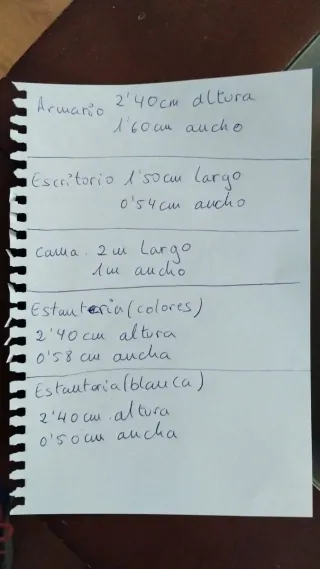 Armario 2'40cm altura
1'60cm ancho
Escritorio 1'50cm largo
0'54cm ancho
cama. 2m largo
1m ancho
Estanteria (colores)
2'40cm altura
0'58cm ancha
Estanteria (blanca)
2'40cm.altura
0'50cm ancha